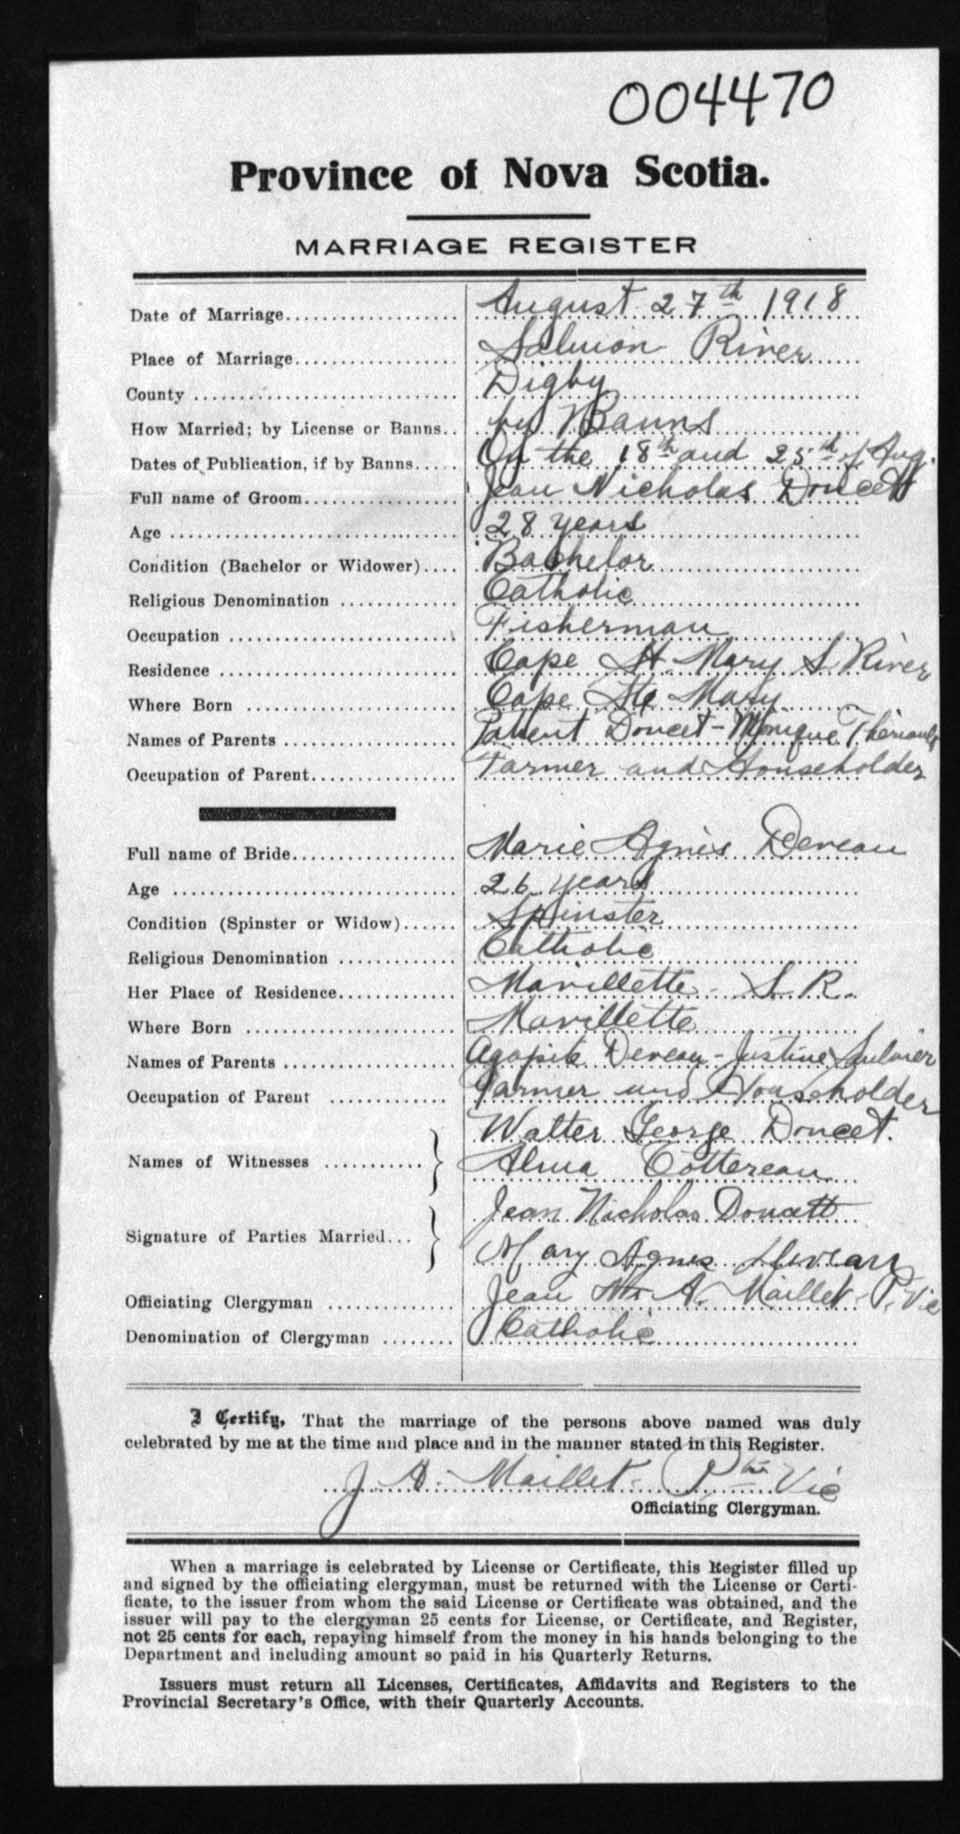 004470
Province of Nova Scotia.
MARRIAGE REGISTER
Date of Marriage................... August 27th 1918
Place of Marriage................... Salmon River
County ............................. Digby
How Married; by License or Banns.. by Banns
Dates of Publication, if by Banns..... On the 18th and 25th of Aug.
Full name of Groom................... Jean Nicholas Doucett
Age ................................. 28 years
Condition (Bachelor or Widower).... Bachelor
Religious Denomination ............ Catholic
Occupation ......................... Fisherman
Residence .......................... Cape St. Mary S. River
Where Born ........................ Cape Ste Mary
Names of Parents .................. Doucet - Monique Thériault
Occupation of Parent............... Farmer and Householder
Full name of Bride.................. Marie Agnès Deveau
Age ................................ 26 years
Condition (Spinster or Widow)...... Spinster
Religious Denomination ............ Catholic
Her Place of Residence............. Mavillette - S. R.
Where Born ........................ Mavillette
Names of Parents .................. Agapit Deveau - Justine Saulnier
Occupation of Parent ............. Farmer and Householder
Names of Witnesses ........... } Walter George Doucet.
Alma Cottereau
Signature of Parties Married... } Jean Nicholas Doucett
Mary Agnes Deveau
Officiating Clergyman ............. Jean A. Maillet P. Vic
Denomination of Clergyman ........ Catholic
I Certify, That the marriage of the persons above named was duly
celebrated by me at the time and place and in the manner stated in this Register.
J. A. Maillet Ptre Vic
Officiating Clergyman.
When a marriage is celebrated by License or Certificate, this Register filled up
and signed by the officiating clergyman, must be returned with the License or Certi-
ficate, to the issuer from whom the said License or Certificate was obtained, and the
issuer will pay to the clergyman 25 cents for License, or Certificate, and Register,
not 25 cents for each, repaying himself from the money in his hands belonging to the
Department and including amount so paid in his Quarterly Returns.
Issuers must return all Licenses, Certificates, Affidavits and Registers to the
Provincial Secretary's Office, with their Quarterly Accounts.